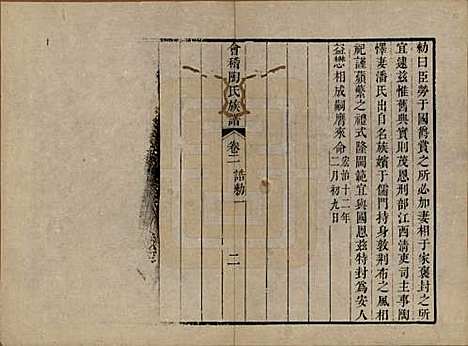 勅曰臣勞于國爵賞之所必加妻相于家褒封之所
宜逮兹惟舊典實則茂恩刑部江西清吏司主事陶
懌妻潘氏出自名族嬪于儒門持身敦荆布之風相
祀謹蘋蘩之禮式隆閫範宜與國恩兹特封爲安人
益懋相成嗣膺來命
宏治十二年
二月初九日
會稽陶氏族譜
卷二
誥勅一
二